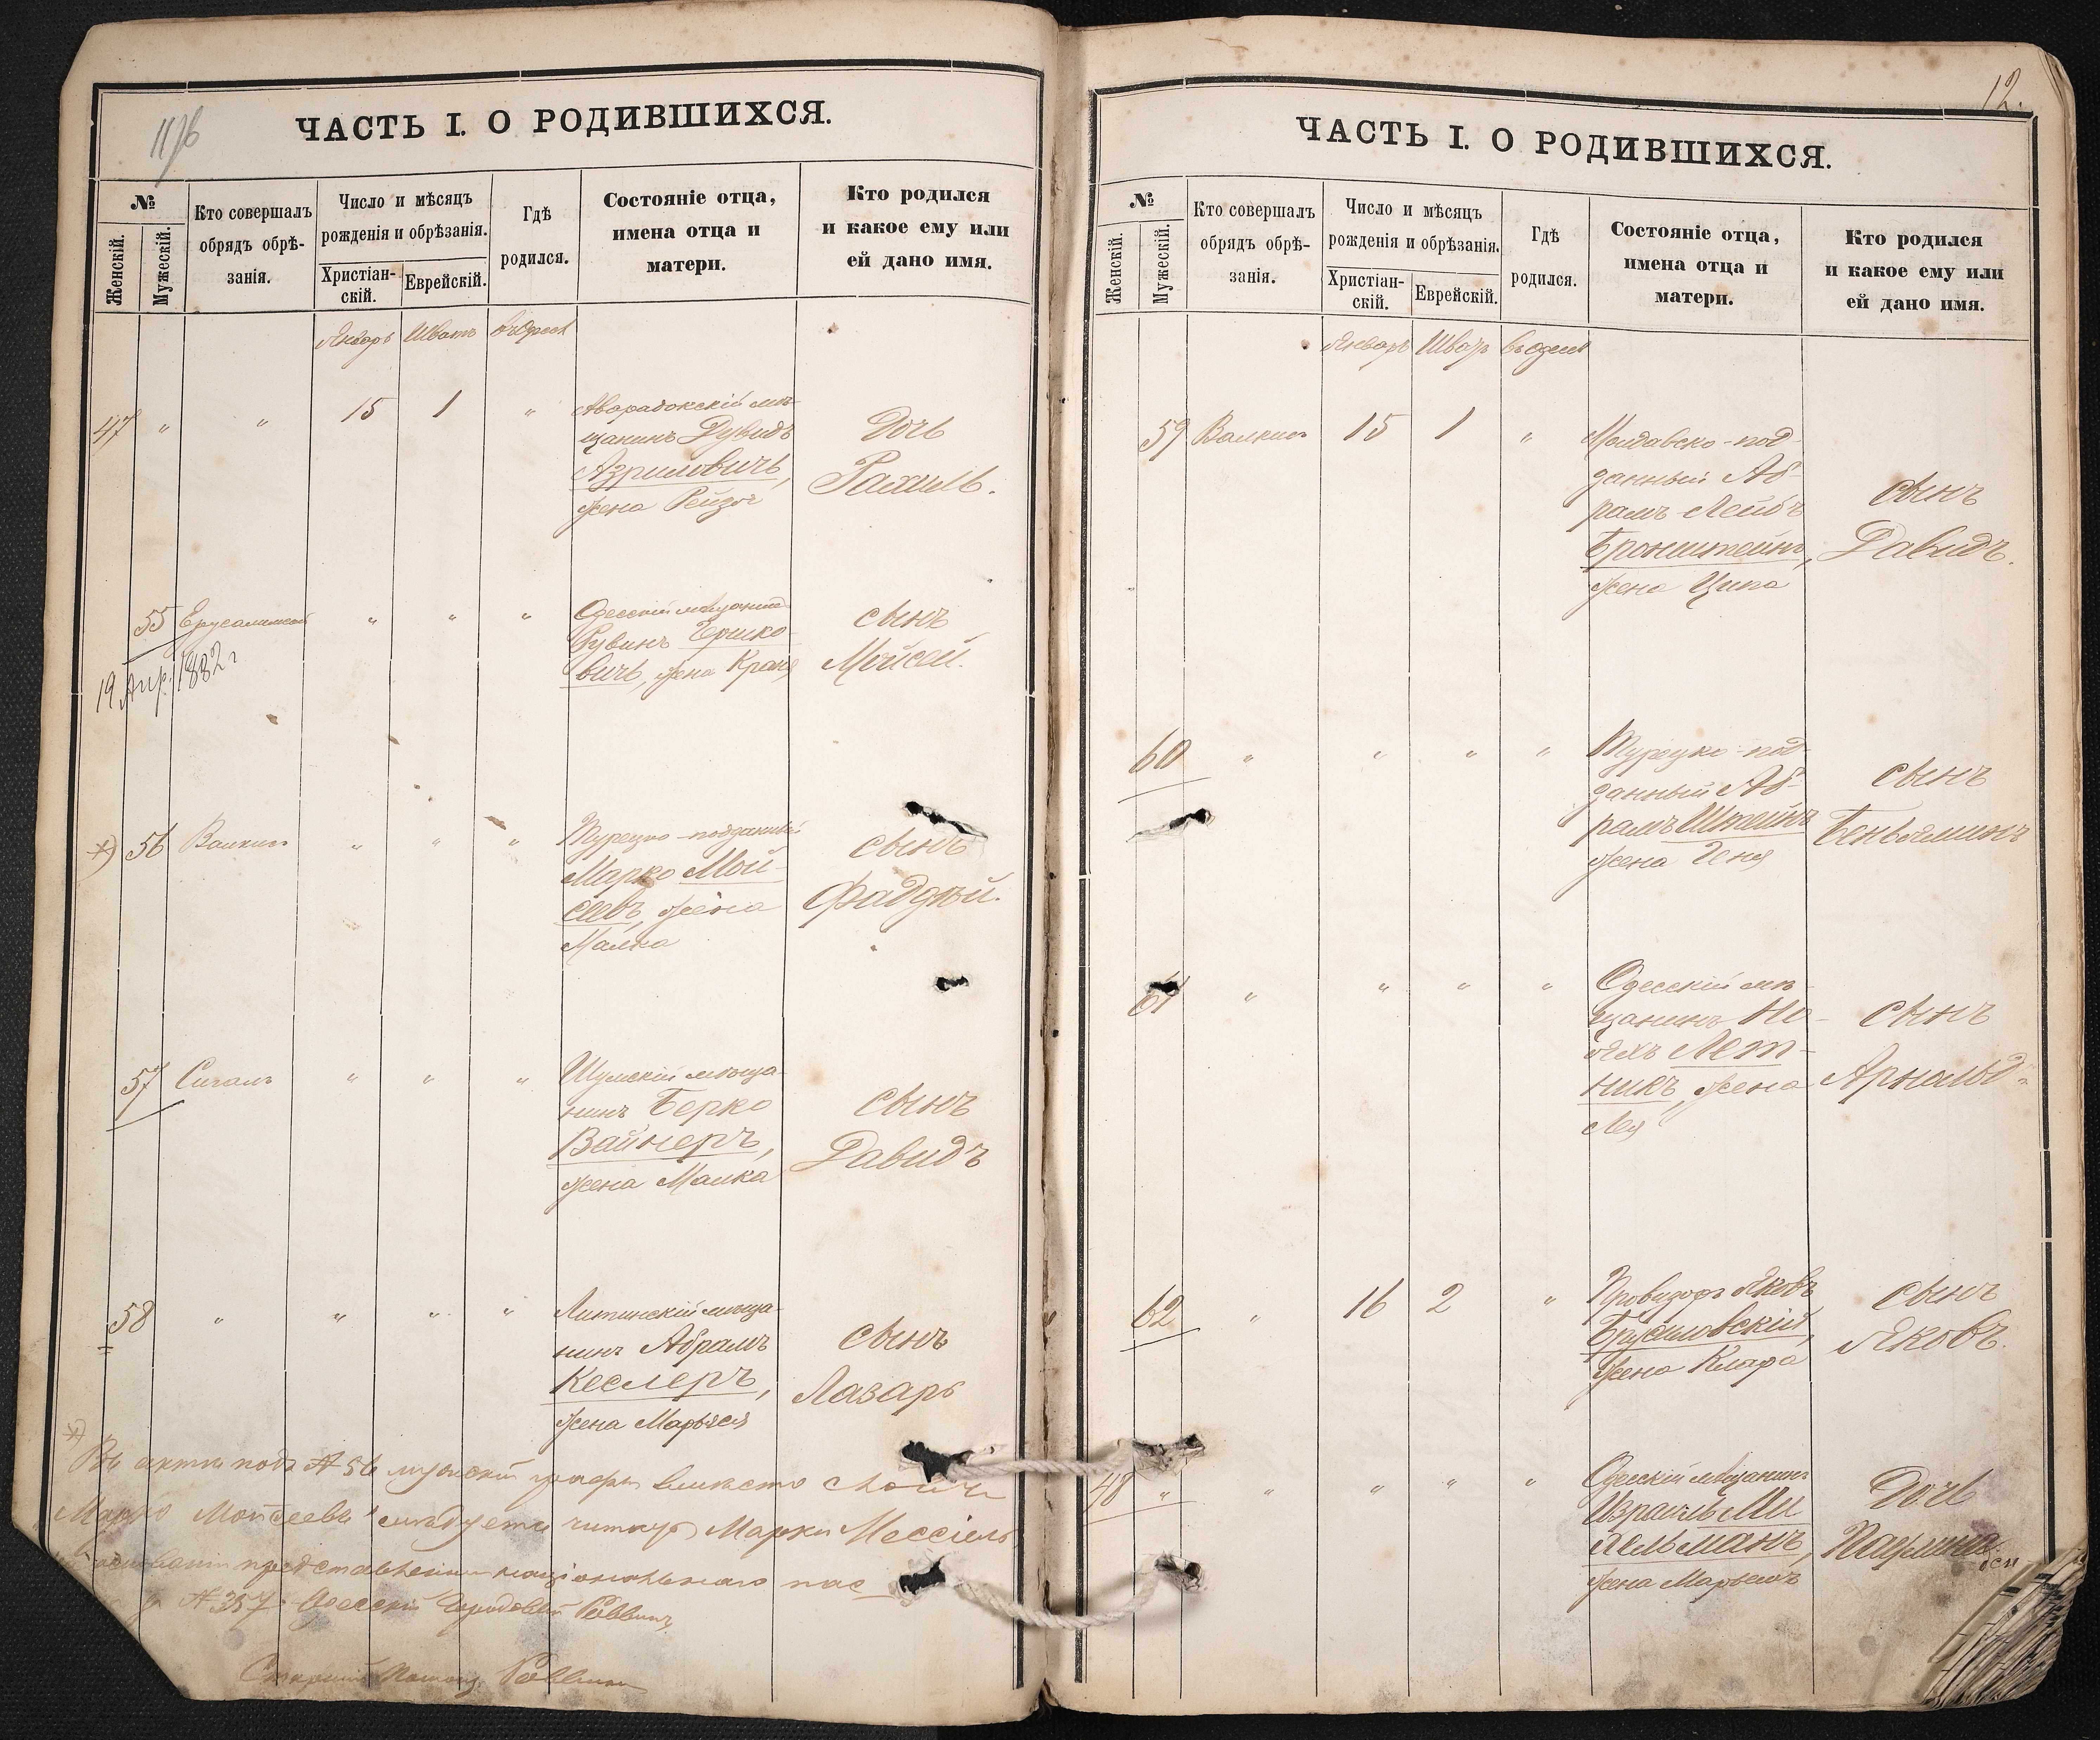 11/6
ЧАСТЬ I. О РОДИВШИХСЯ.
№
Женскій.
Мужескій.
Кто совершалъ
обрядъ обрѣ-
занія.
Число и мѣсяцъ
рожденія и обрѣзанія.
Христіан-
скій.
Еврейскій.
Гдѣ
родился.
Состояніе отца,
имена отца и
матери.
Кто родился
и какое ему или
ей дано имя.
Январь Шватъ въ Одессѣ
47 " " 15 1 "
мѣ-
щанинъ Дувидъ
Азриловичъ,
жена Рейзя
Дочь
Рахиль.
55 " " "
19 Апр. 1882 г
Одесскій мѣщанинъ
Рувинъ Гершко-
вичъ, жена Краня
сынъ
Мойсей.
*) 56 Валкинъ " " "
Турецко-подданный
Марко Мой-
сеевъ, жена
Малка
сынъ
Фаддѣй.
57 Сигалъ " " "
Шумскій мѣща-
нинъ Берко
Вайнеръ,
жена Малка
сынъ
Давидъ
58 " " " "
Литинскій мѣща-
нинъ Абрамъ
Кеслеръ,
жена Марьяся
сынъ
Лазарь
*)
Въ актѣ подъ № 56 мужской графы вмѣсто
Марко Мойсеевъ" слѣдуетъ читать Марко Мессіель,
представленнаго національнаго пас
№ 357. Одесскій Городовой Раввинъ
Старшій Помощ. Раввина
12.
ЧАСТЬ I. О РОДИВШИХСЯ.
№
Женскій.
Мужескій.
Кто совершалъ
обрядъ обрѣ-
занія.
Число и мѣсяцъ
рожденія и обрѣзанія.
Христіан-
скій.
Еврейскій.
Гдѣ
родился.
Состояніе отца,
имена отца и
матери.
Кто родился
и какое ему или
ей дано имя.
Январь Шватъ въ Одессѣ
59 Валкинъ 15 1 "
Молдавско-под-
данный Аб-
рамъ-Лейбъ
Бронштейнъ,
жена Ципа
сынъ
Давидъ.
60 " " " "
Турецко-под-
данный Аб-
рамъ Штейнъ
жена Геня
сынъ
Беньяминъ
61 " " " "
Одесскій мѣ-
щанинъ Но-
Лет-
никъ, жена
Лея
сынъ
Арнольдъ
62 " 16 2 "
Провизоръ Яковъ
Брусиловскій,
жена Клара
сынъ
Яковъ.
48 " " " " "
Одесскій мѣщанинъ
Израиль Ми
тельманъ,
жена Марьемъ
Дочь
Паулина